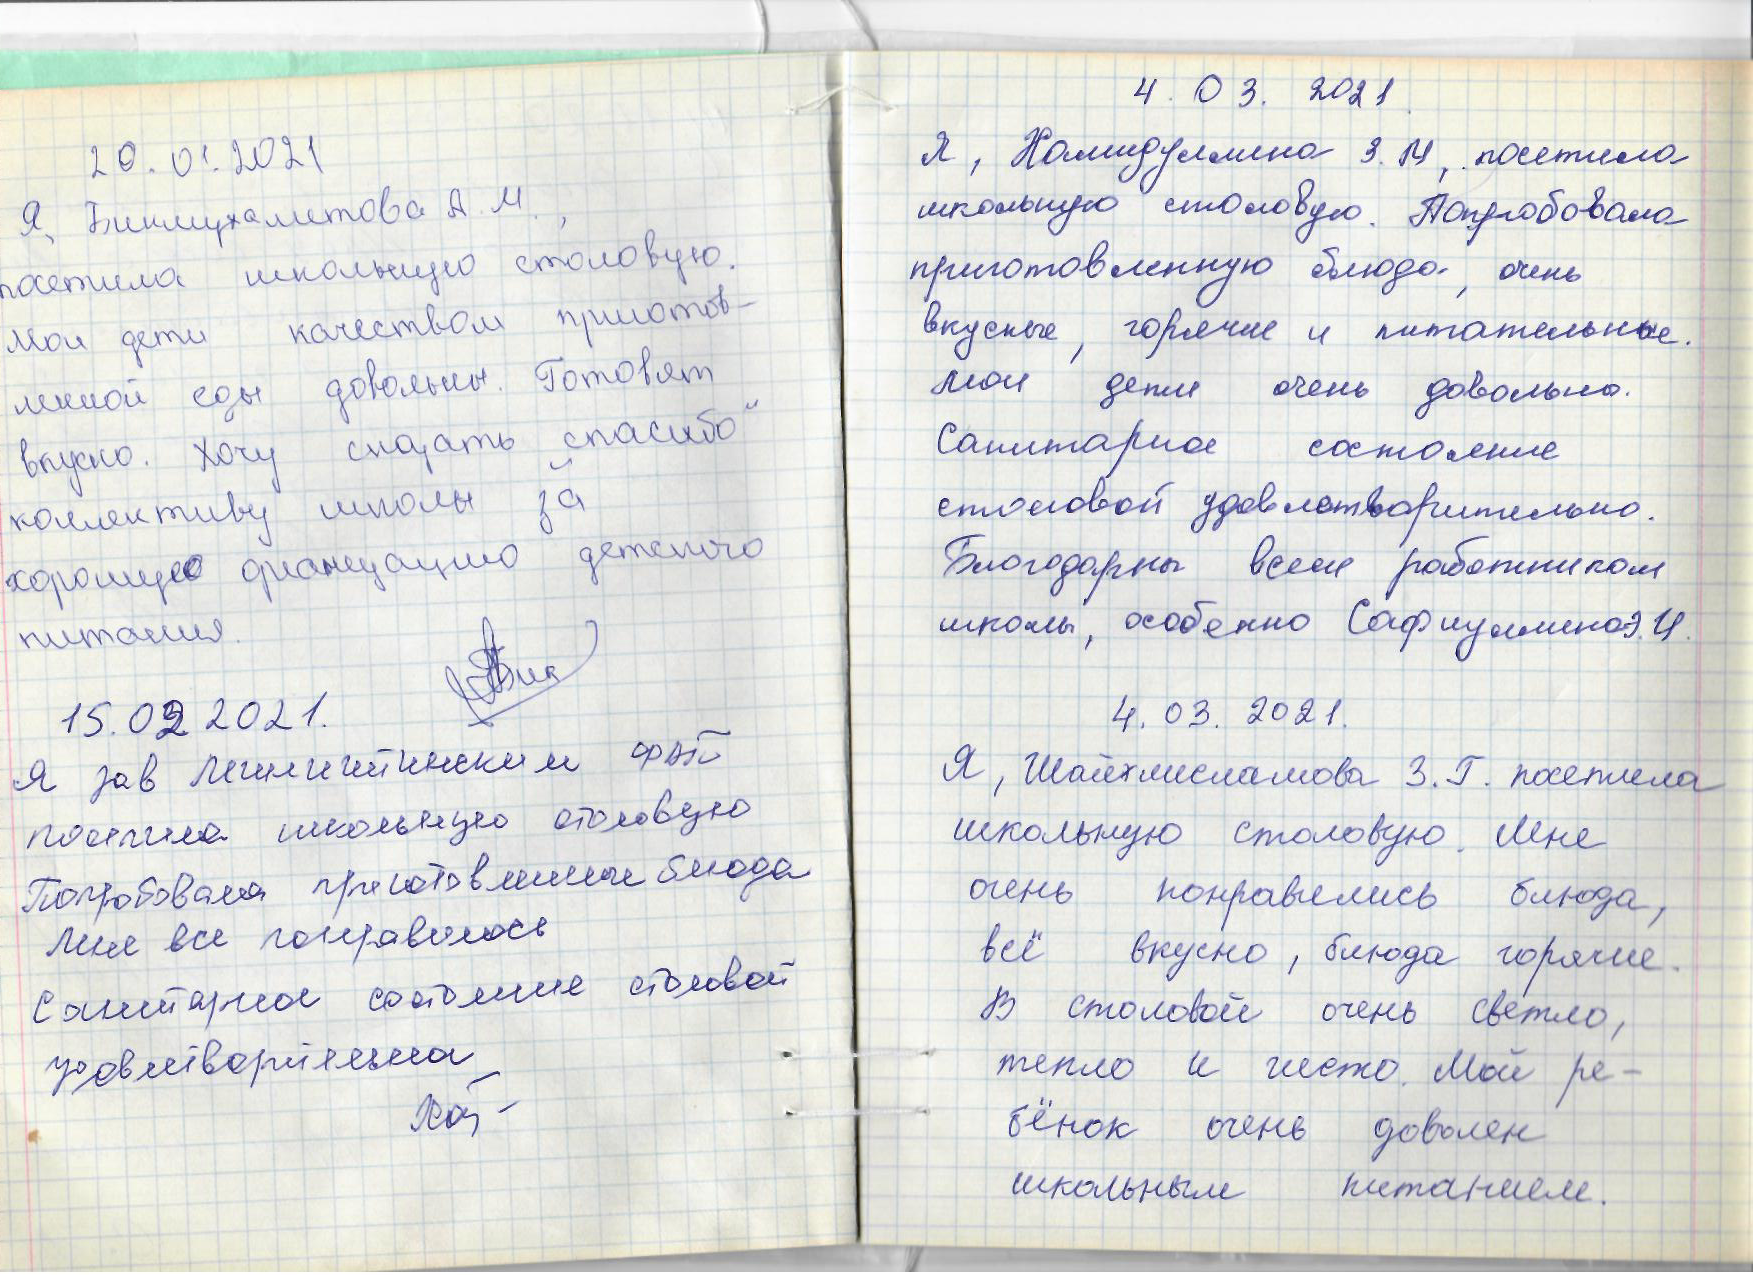 20.01.2021
Я, Бикмухаметова А.М.,
посетила школьную столовую.
Мои дети качеством приготов-
ленной еды довольны. Готовят
вкусно. Хочу сказать спасибо"
коллективу школы за
хорошую организацию детского
питания.
15.02 2021.
Я зав ФАП
посетила школьную столовую
Попробовала приготовленные блюда
Мне все понравилось
Санитарное состояние столовой
удовлетворительна
4.03.2021.
Я, Хамидуллина З.М, посетила
школьную столовую. Попробовала
приготовленную блюда, очень
вкусные, горячие и питательные.
Мои дети очень довольны.
Санитарное состояние
столовой удовлетворительно.
Благодарны всем работникам
школы, особенно Сафиуллина Э.И.
4.03.2021.
Я, Шайхлисламова З.Г. посетила
школьную столовую. Мне
очень понравились блюда,
всё вкусно, блюда горячие.
В столовой очень светло,
тепло и чисто. Мой ре-
бёнок очень доволен
школьным питанием.